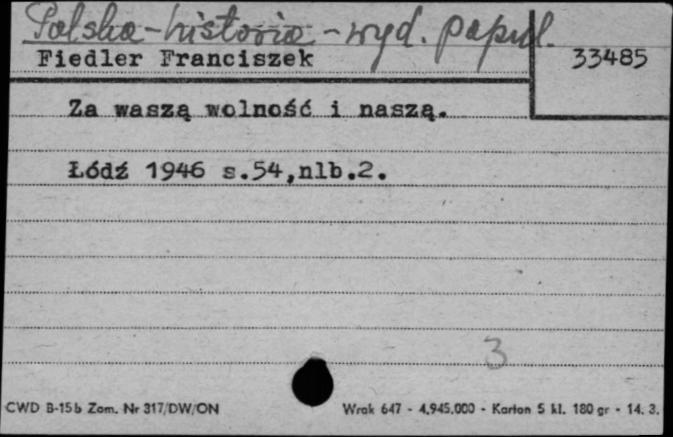 Polska - historia - wyd. popul.
Fiedler Franciszek
33485
Za waszą wolność i naszą.
Łódź 1946 s.54,nlb.2.
3
CWD B-15b Zam. Nr 317/DW/ON
Wrak 647 - 4.945.000 - Karton 5 kl. 180 gr - 14. 3.